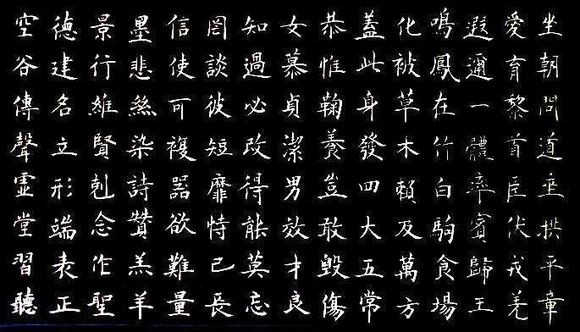 坐朝問道垂拱平章
愛育黎首臣伏戎羌
遐邇一體率賓歸王
鳴鳳在竹白駒食場
化被草木賴及萬方
蓋此身發四大五常
恭惟鞠養豈敢毀傷
女慕貞潔男效才良
知過必改得能莫忘
罔談彼短靡恃己長
信使可複器欲難量
墨悲絲染詩贊羔羊
景行維賢剋念作聖
德建名立形端表正
空谷傳聲虛堂習聽